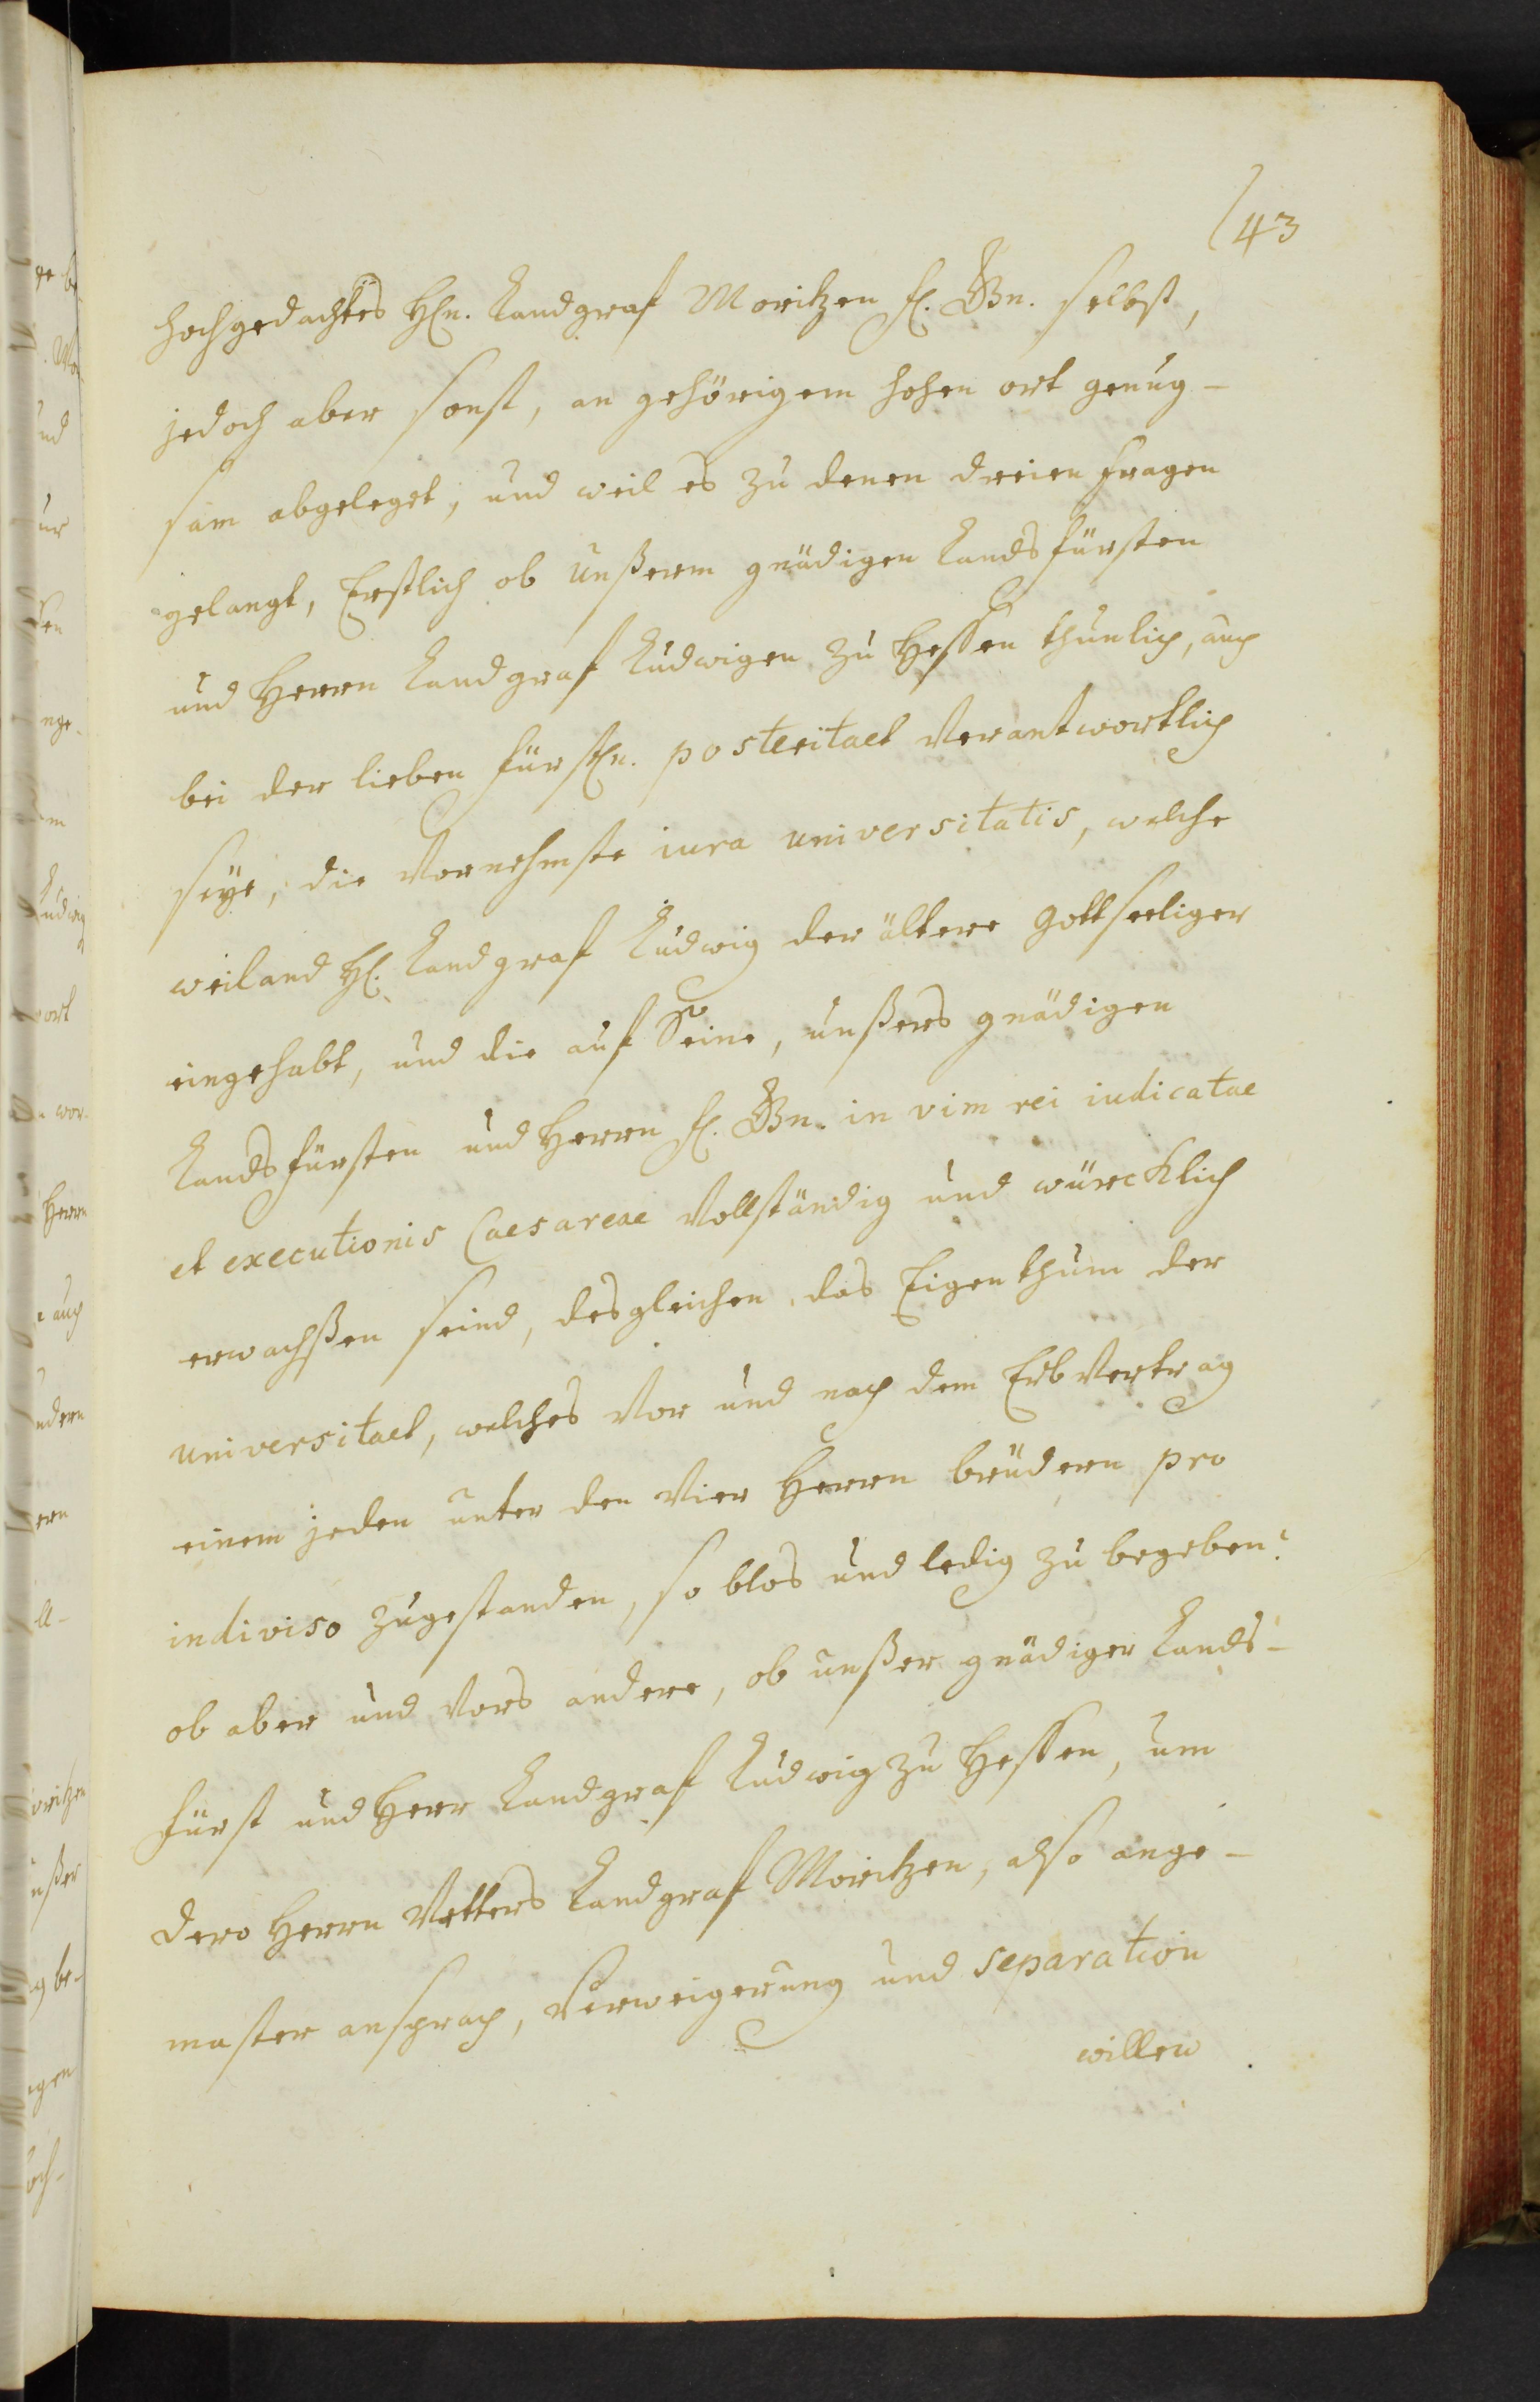 43
hochgedachtes Hn. Landgraf Moritzen f. Gn. selbst,
jedoch aber sonst, an gehörigem hohen ort genug-
sam abgeleget, und weil es zu denen dreien fragen
gelangt, Erstlich ob Unßerm gnädigen Landsfürsten
und Herrn Landgraf Ludwigen zu Hessen thunlich, auch
bei der lieben fürstln. posteritaet Verantwortlich
seye, die Vornehmste iura universitatis, welche
weiland H. Landgraf Ludwig der ältere Gottseeliger
eingehabt, und die auf Seine, unßers gnädigen
Landsfürsten und Herrn f. Gn. in vim rei iudicatae
et executionis Caesareae Vollständig und würcklich
erwachßen seind, desgleichen das Eigenthum der
universitaet, welches Vor und nach dem Erb Vertrag
einem jeden unter den Vier Herrn brüdern pro
indiviso zugestanden, so blos und ledig zu begeben?
ob aber und Vors andere, ob unßer gnädiger Lands-
fürst und Herr Landgraf Ludwig zu Hessen, um
dero Herrn Vetters Landgraf Moritzen, also ange-
master ansprach, Verweigerung und separation
willen